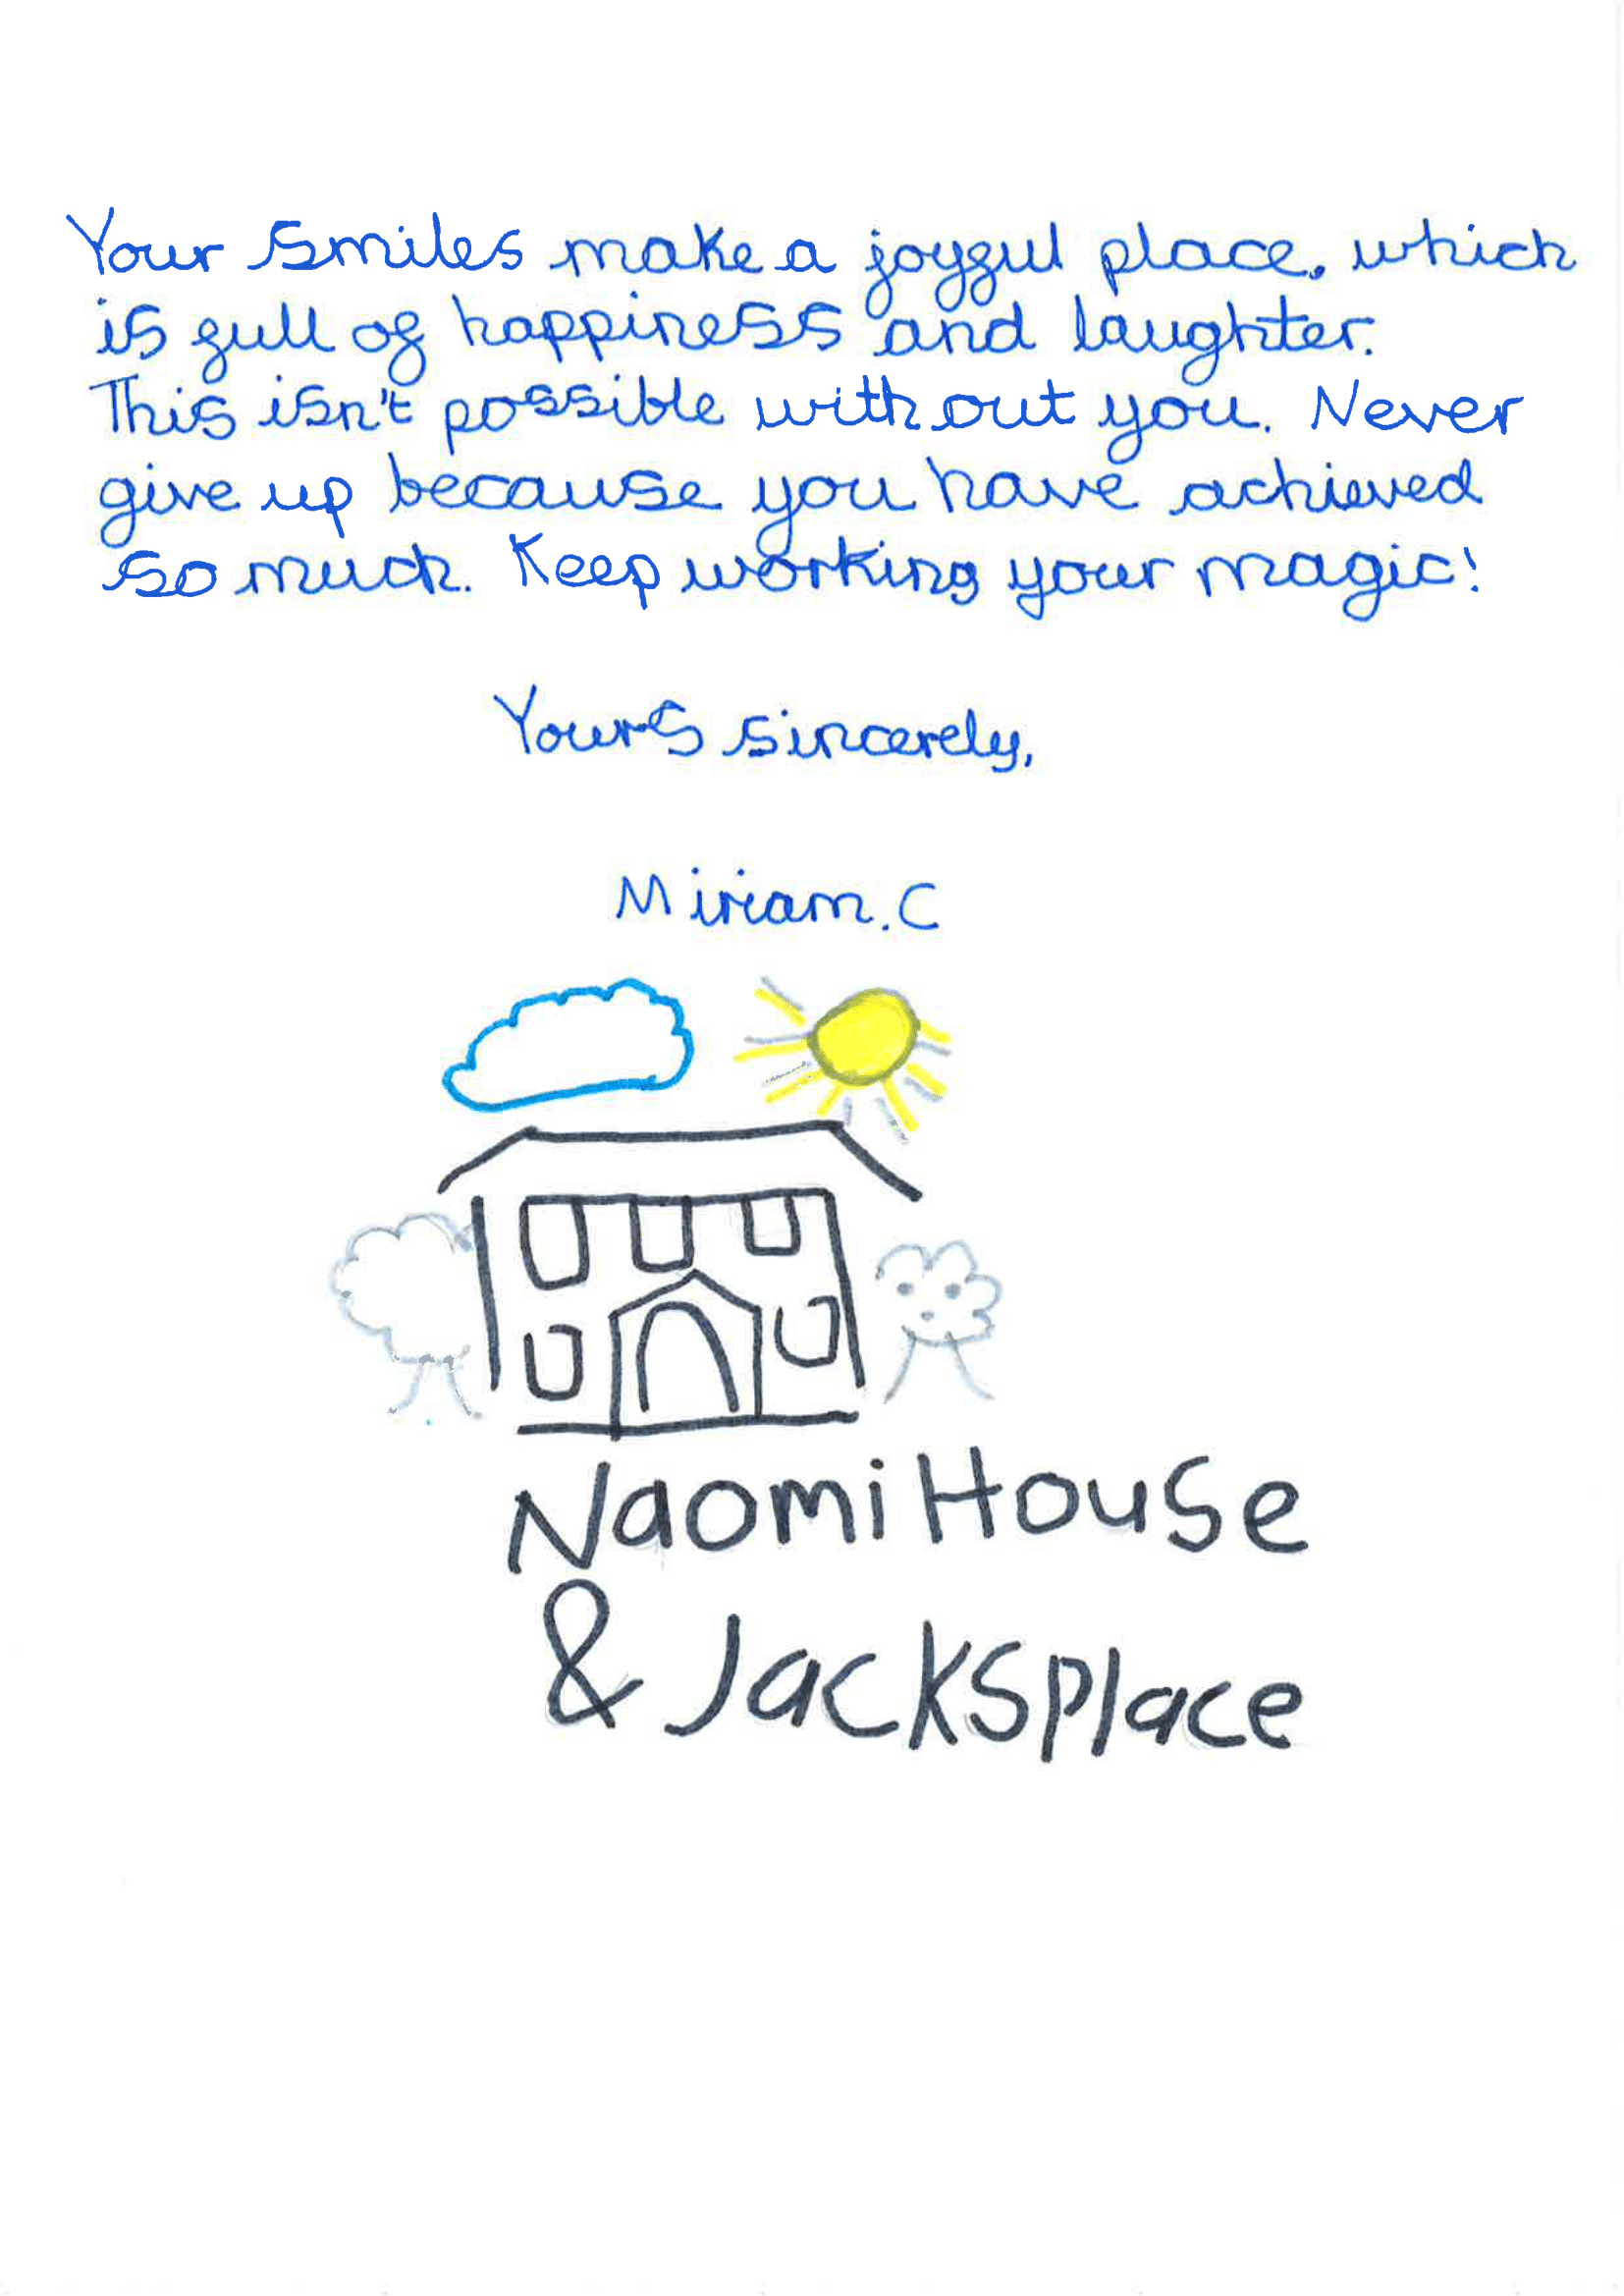 Your smiles make a joyful place, which
is full of happiness and laughter.
This isn't possible without you. Never
give up because you have achieved
so much. Keep working your magic!
Yours sincerely,
Miriam.C
Naomi House
& Jacksplace